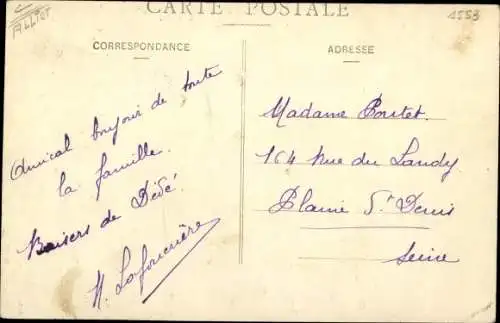 CARTE POSTALE
1553
CORRESPONDANCE
Amical bonjour de toute
la famille.
Baisers de Dédé.
ADRESSE
Madame Poutet.
164 Rue du Landy
Plaine St Denis
Seine